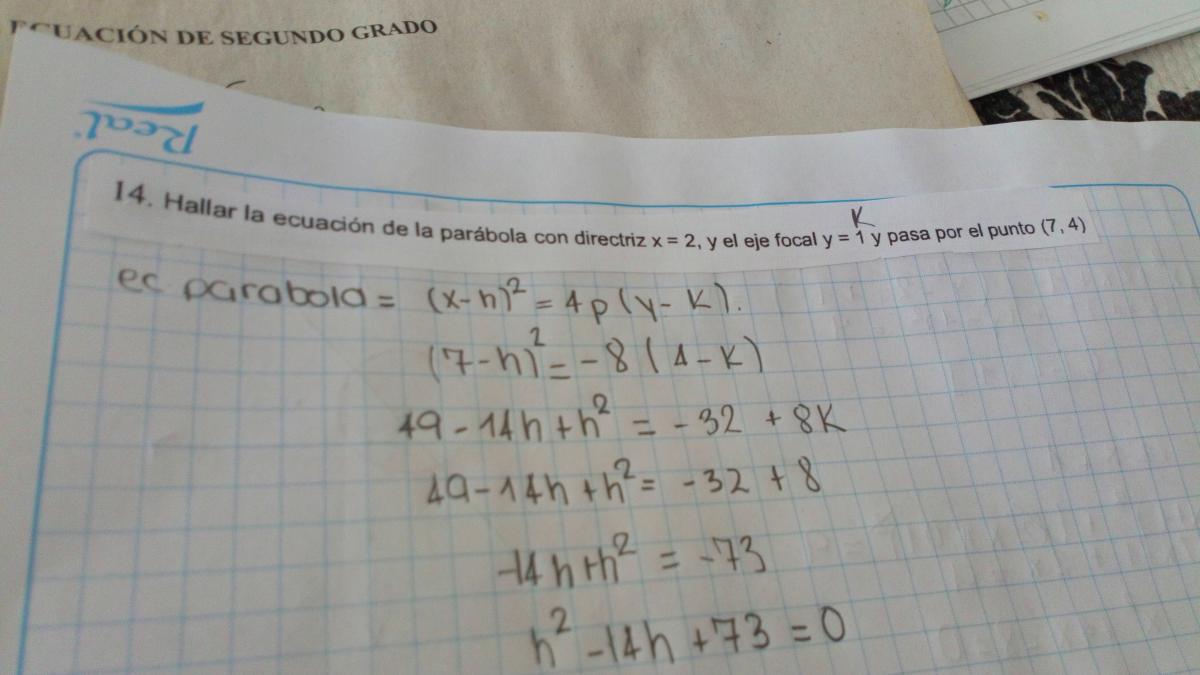 ECUACIÓN DE SEGUNDO GRADO
Real
14. Hallar la ecuación de la parábola con directriz x = 2, y el eje focal y = 1 y pasa por el punto (7, 4)
K
ec parabola = (x-h)² = 4p(y-K).
(7-h)² = -8(4-K)
49-14h+h² = -32 + 8K
49-14h+h² = -32 + 8
-14h+h² = -73
h² -14h +73 = 0